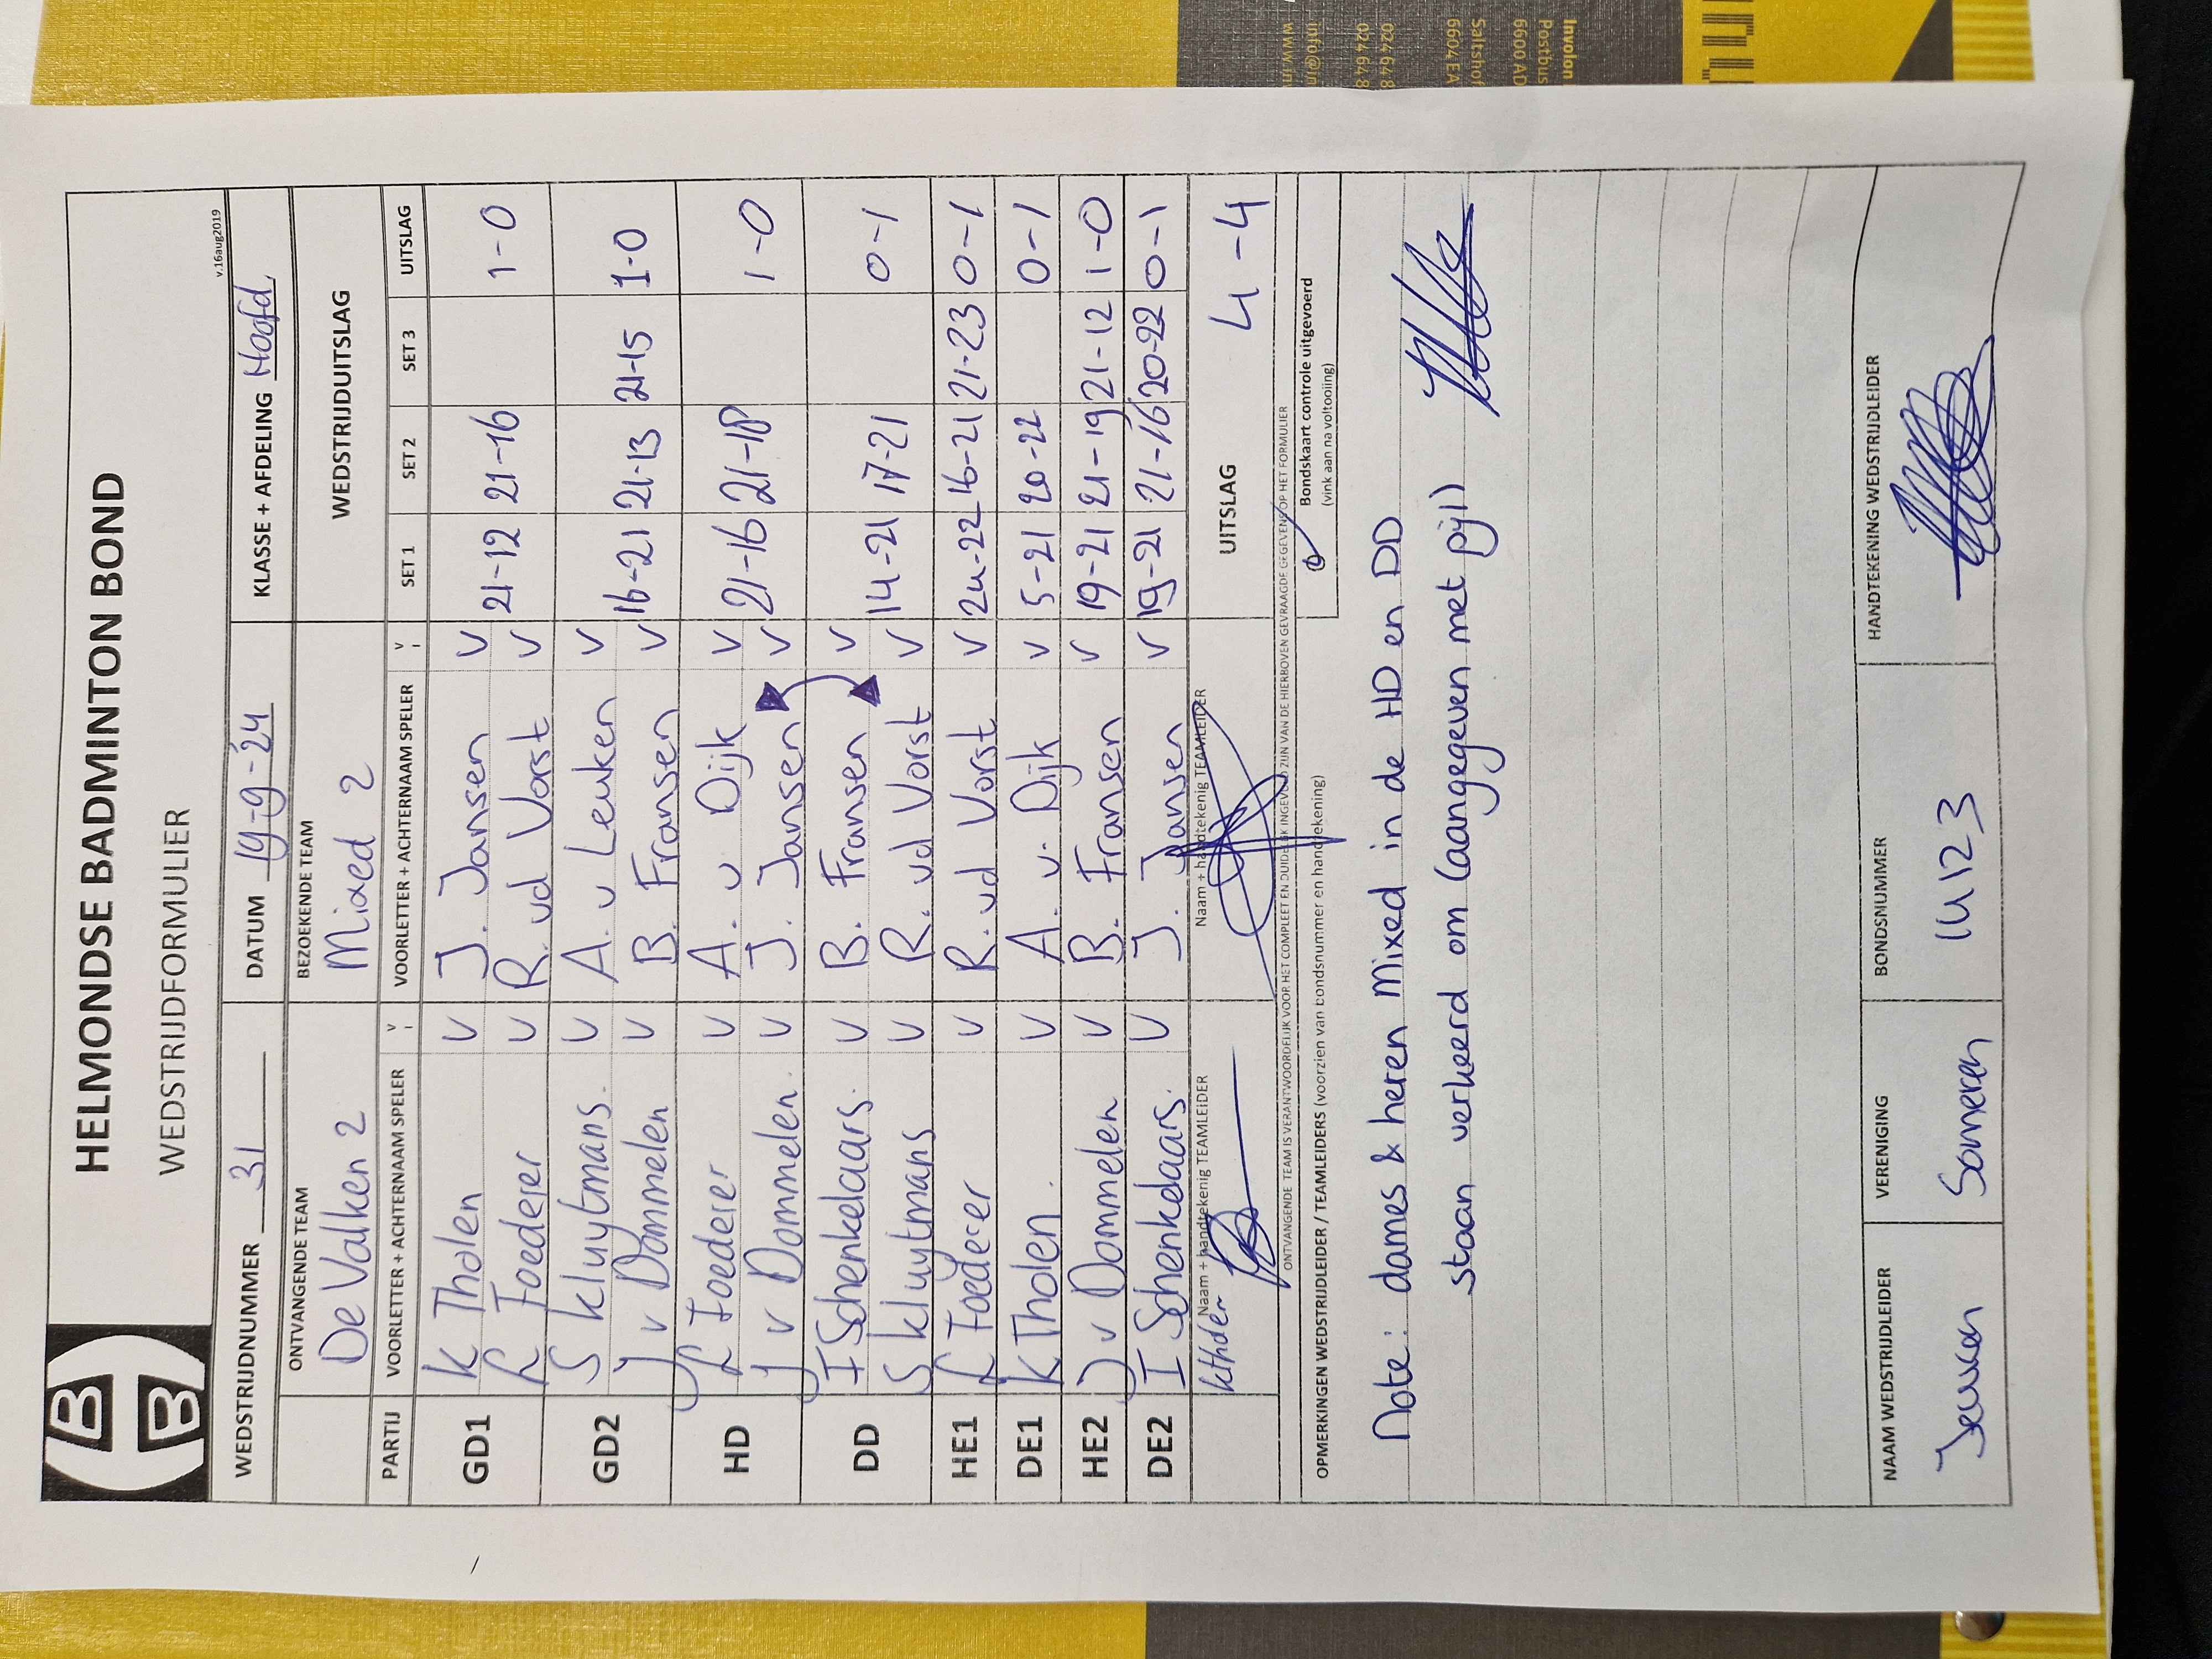 HELMONDSE BADMINTON BOND
WEDSTRIJDFORMULIER
v.16aug2019
WEDSTRIJDNUMMER 31 DATUM 19-9-'24 KLASSE + AFDELING Hoofd
ONTVANGENDE TEAM BEZOEKENDE TEAM WEDSTRIJDUITSLAG
De Valken 2 Mixed 2
PARTIJ VOORLETTER + ACHTERNAAM SPELER V VOORLETTER + ACHTERNAAM SPELER V SET 1 SET 2 SET 3 UITSLAG
GD1 K Tholen V J. Jansen V
L Foederer V R. vd Vorst V 21-12 21-16 1-0
GD2 S kluytmans V A. v Leuken V
J v Dommelen V B. Fransen V 16-21 21-13 21-15 1-0
HD L Foederer V A. v Dijk V
J v Dommelen. V J. Jansen V 21-16 21-18 1-0
DD I Schenkelaars. V B. Fransen V
S kluytmans V R. vd Vorst V 14-21 17-21 0-1
HE1 L Foederer V R. vd Vorst V 24-22 16-21 21-23 0-1
DE1 K Tholen. V A. v. Dijk V 5-21 20-22 0-1
HE2 J v Dommelen V B. Fransen V 19-21 21-19 21-12 1-0
DE2 I Schenkelaars. V J. Jansen V 19-21 21-16 20-22 0-1
Naam + handtekenig TEAMLEIDER Naam + handtekenig TEAMLEIDER UITSLAG 4-4
ktholen
ONTVANGENDE TEAM IS VERANTWOORDELIJK VOOR HET COMPLEET EN DUIDELIJK INGEVULD ZIJN VAN DE HIERBOVEN GEVRAAGDE GEGEVENS OP HET FORMULIER
OPMERKINGEN WEDSTRIJDLEIDER / TEAMLEIDERS (voorzien van bondsnummer en handtekening)
Bondskaart controle uitgevoerd
(vink aan na voltooiing)
Note: dames & heren Mixed in de HD en DD
staan verkeerd om (aangegeven met pijl)
NAAM WEDSTRIJDLEIDER VERENIGING BONDSNUMMER HANDTEKENING WEDSTRIJDLEIDER
Someren 14123
Involon
Postbus
6600 AD
Saltshof
6604 EA
024 648
024 648
info@in
www.in